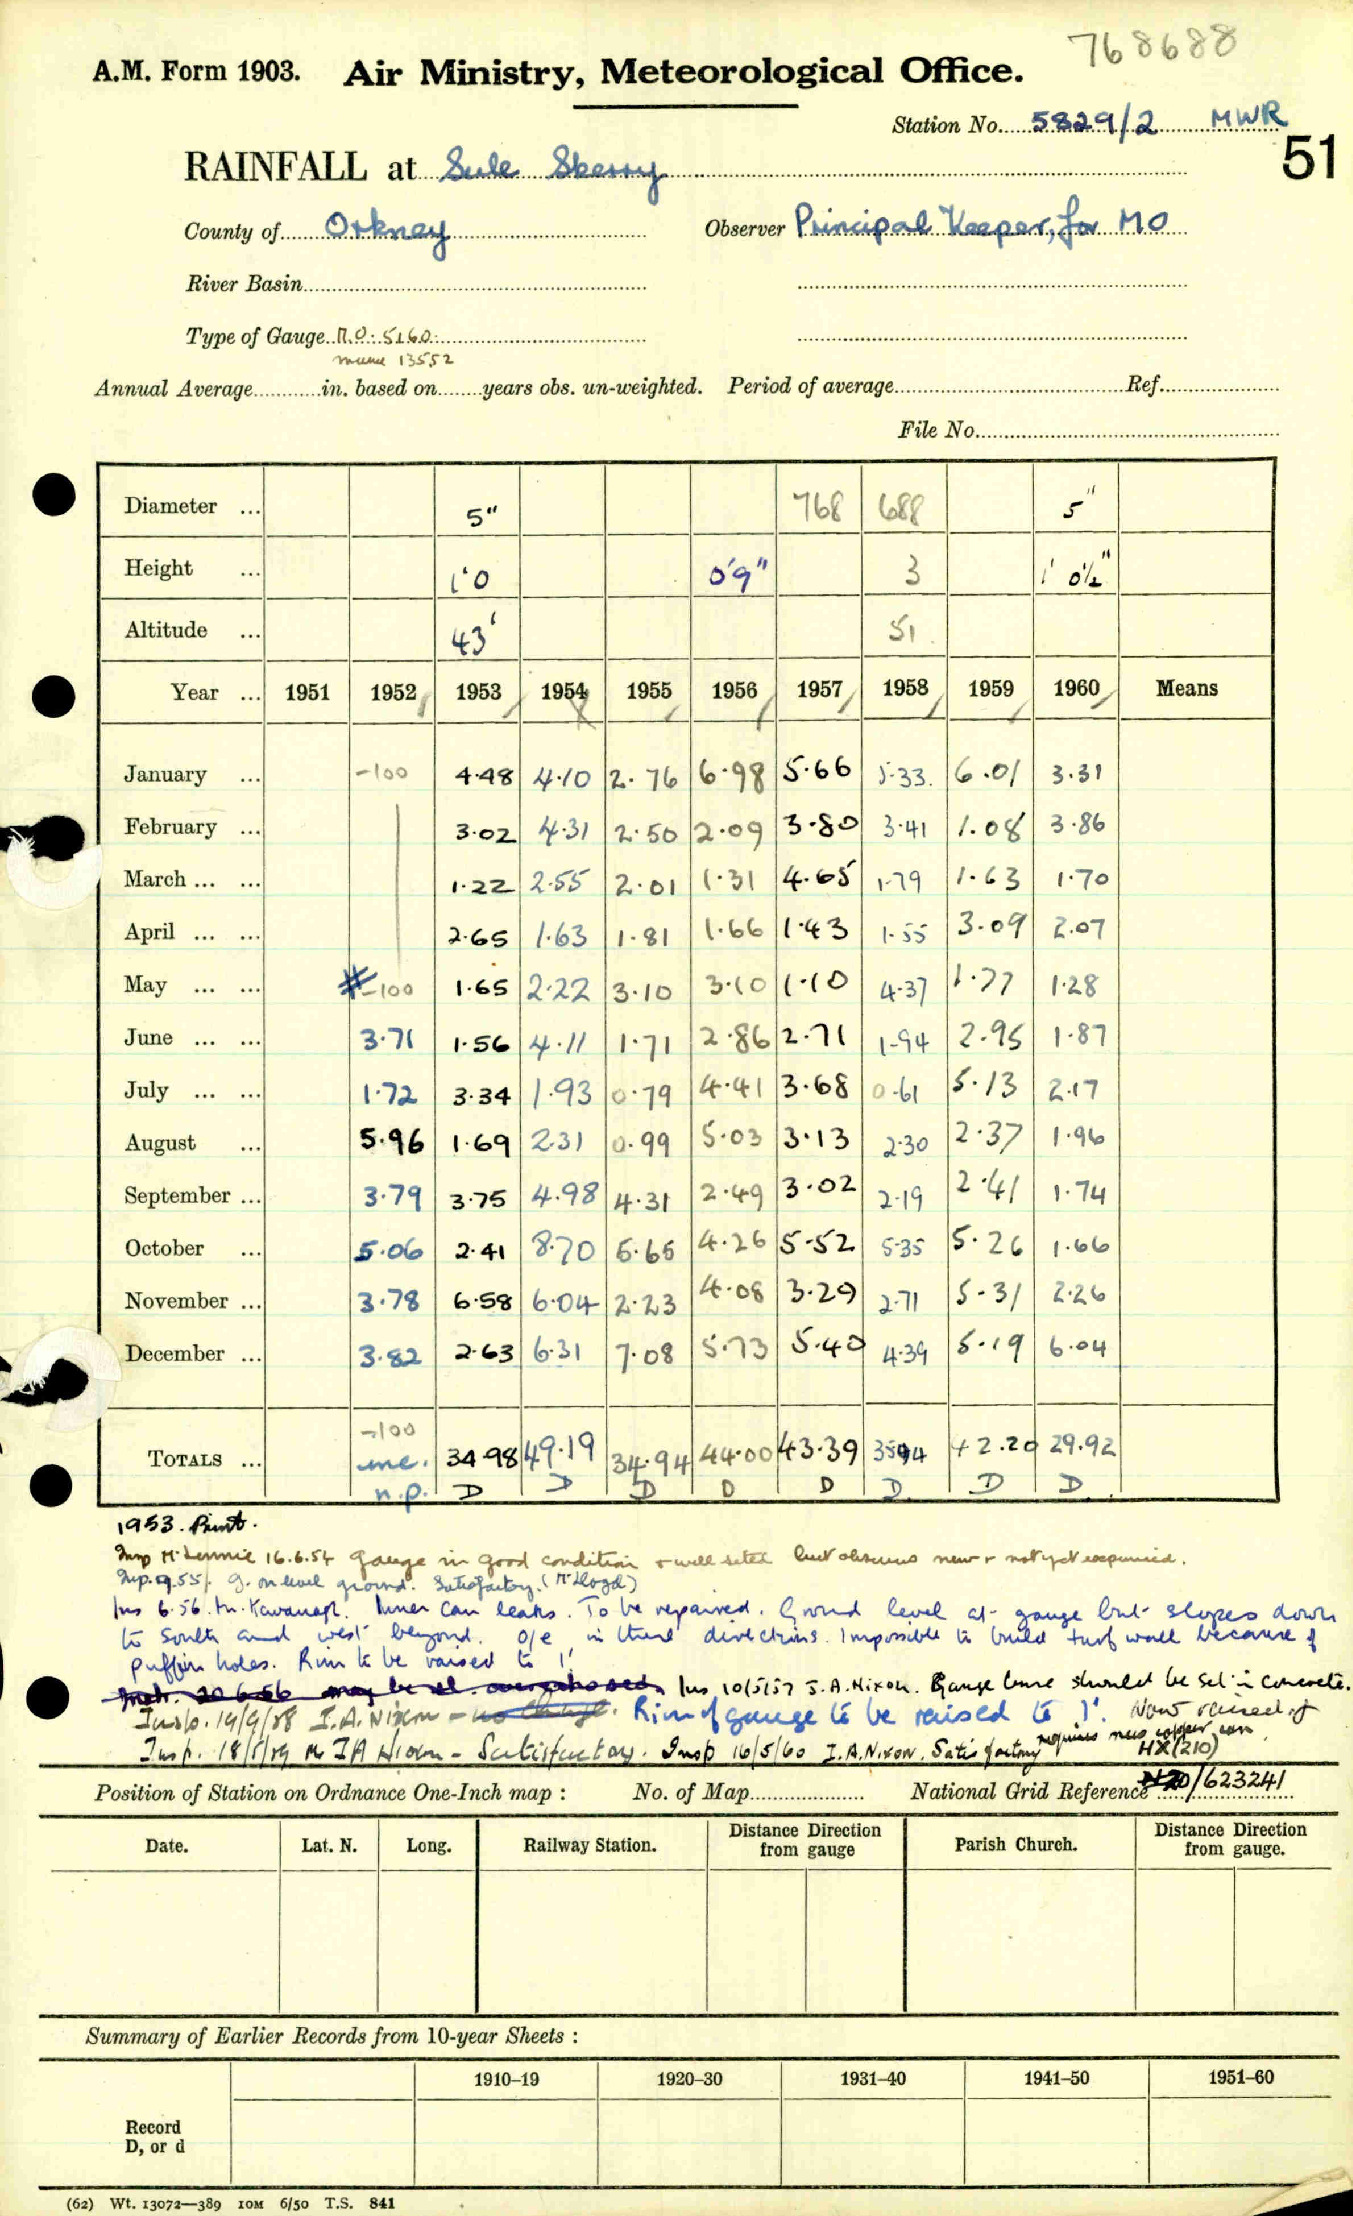 768688
A.M. Form 1903. Air Ministry, Meteorological Office.
Station No. 5829/2 MWR
51
RAINFALL at Sule Skerry
County of Orkney Observer Principal Keeper, for MO
River Basin
Type of Gauge M.O. 5160
13552
Annual Average in. based on years obs. un-weighted. Period of average Ref.
File No.
Diameter ... 5" 768 688 5"
Height ... 1'0 0'9" 3 1' 0½"
Altitude ... 43' 51
Year ... 1951 1952 1953 1954 1955 1956 1957 1958 1959 1960 Means
January ... -100 4.48 4.10 2.76 6.98 5.66 5.33 6.01 3.31
February ... 3.02 4.31 2.50 2.09 3.80 3.41 1.08 3.86
March ... ... 1.22 2.55 2.01 1.31 4.65 1.79 1.63 1.70
April ... ... 2.65 1.63 1.81 1.66 1.43 1.55 3.09 2.07
May ... ... # -100 1.65 2.22 3.10 3.10 1.10 4.37 1.77 1.28
June ... ... 3.71 1.56 4.11 1.71 2.86 2.71 1.94 2.95 1.87
July ... ... 1.72 3.34 1.93 0.79 4.41 3.68 0.61 5.13 2.17
August ... 5.96 1.69 2.31 0.99 5.03 3.13 2.30 2.37 1.96
September ... 3.79 3.75 4.98 4.31 2.49 3.02 2.19 2.41 1.74
October ... 5.06 2.41 8.70 5.65 4.26 5.52 5.35 5.26 1.66
November ... 3.78 6.58 6.04 2.23 4.08 3.29 2.71 5.31 2.26
December ... 3.82 2.63 6.31 7.08 5.73 5.40 4.39 5.19 6.04
-100
TOTALS ... inc. 34.98 49.19 34.94 44.00 43.39 35.94 42.20 29.92
n.p. D D D D D D D D
1953. Print.
Insp 16.6.54 gauge in good condition + well sited but observers new + not yet experienced.
Insp. 9.55. g. on level ground. Satisfactory. (Mr Lloyd)
Ins 6.56. Mr. Kavanagh. Inner can leaks. To be repaired. Ground level at gauge but slopes down
to South and west beyond. o/e in these directions. Impossible to build turf wall because of
puffin holes. Rim to be raised to 1'
Ins 10/5/57 J.A. Nixon. Gauge base should be set in concrete.
Insp. 19/9/58 I.A. Nixon - no change. Rim of gauge to be raised to 1'. Now raised
Insp. 18/5/59 Mr I A Nixon - Satisfactory. Insp 16/5/60 I.A. Nixon. Satisfactory requires new copper can
HX(210)
Position of Station on Ordnance One-Inch map : No. of Map National Grid Reference N20/623241
Date. Lat. N. Long. Railway Station. Distance from gauge Direction Parish Church. Distance from gauge. Direction
Summary of Earlier Records from 10-year Sheets :
1910–19 1920–30 1931–40 1941–50 1951–60
Record
D, or d
(62) Wt. 13072—389 10M 6/50 T.S. 841